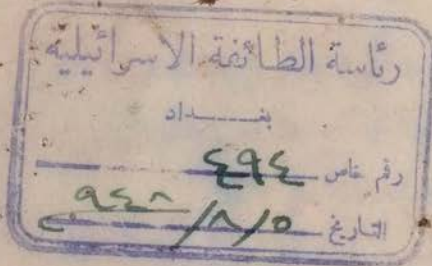 رئاسة الطائفة الاسرائيلية
بغداد
رقم خاص ٤٩٤
التاريخ ٥/٨/٩٤٨